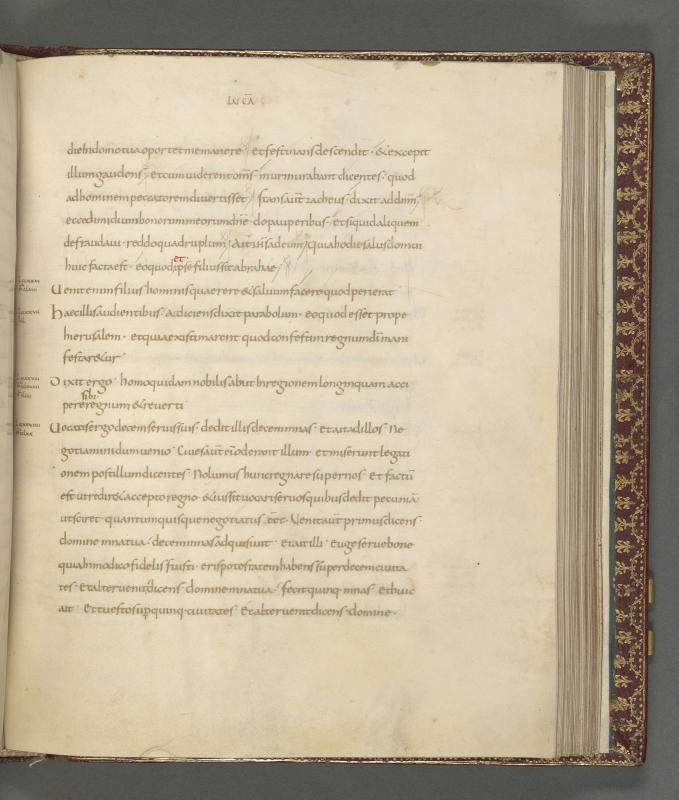 LUCĀ
die in domo tua oportet me manere et festinans descendit & excepit
illum gaudens et cum viderent om̄s murmurabant dicentes quod
ad hominem peccatorem divertisset stans aut̄ zacheus dixit ad dn̄m
ecce dimidium bonorum meorum dn̄e do pauperibus et si quid aliquem
defraudavi reddo quadruplum Ait ih̄s ad eum quia hodie salus domui
et
huic facta est eo quod ipse filius sit abrahae
Venit enim filius hominis quaerere & salvum facere quod perierat
haec illis audientibus adiciens dixit parabolum eo quod esset prope
hierusalem et quia existimarent quod confestim regnum dī mani
festar&ur
Dixit ergo homo quidam nobilis abiit in regionem longinquam acci
sibi
pere regnum & reverti
Vocatis ergo decem servis suis dedit illis decem mnas et ait ad illos Ne
gotiamini dum venio Cives aut̄ ei oderant illum et miserunt legati
onem post illum dicentes Nolumus hunc regnare super nos et factū
est ut redir& accepto regno & iussit vocari servos quibus dedit pecuniā
ut sciret quantum quisque negotiatus ēēt Venit aut̄ primus dicens
domine mna tua decem mnas adquisivit et ait illi Euge serve bone
quia in modico fidelis fuisti eris potestatem habens super decem civita
tes et alter venit dicens domine mna tua fecit quinq mnas et huic
ait Et tu esto sup̄ quinq civitates Et alter venit dicens domine